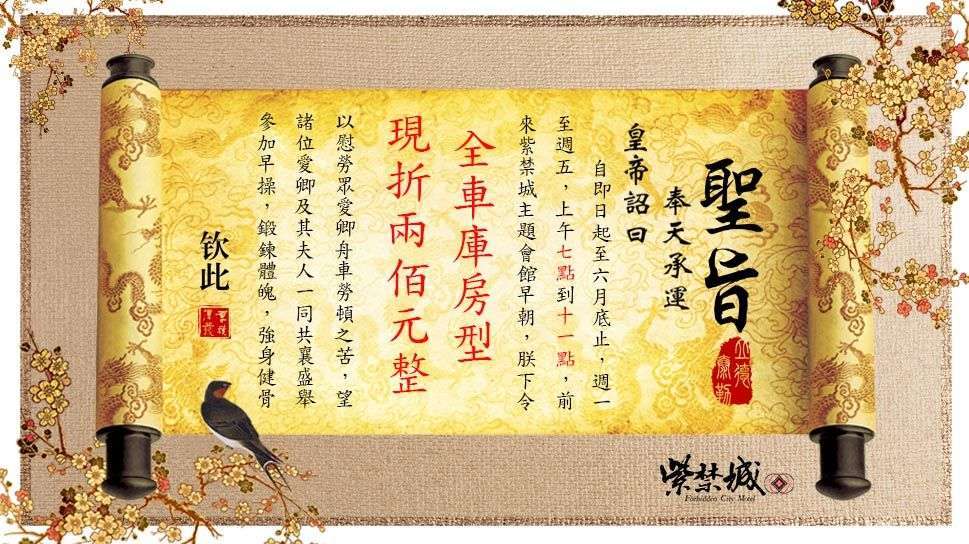 聖旨
奉天承運
皇帝詔曰
自即日起至六月底止，週一
至週五，上午七點到十一點，前
來紫禁城主題會館早朝，朕下令
全車庫房型
現折兩佰元整
以慰勞眾愛卿舟車勞頓之苦，望
諸位愛卿及其夫人一同共襄盛舉
參加早操，鍛鍊體魄，強身健骨
钦此
紫禁城
Forbidden City Motel